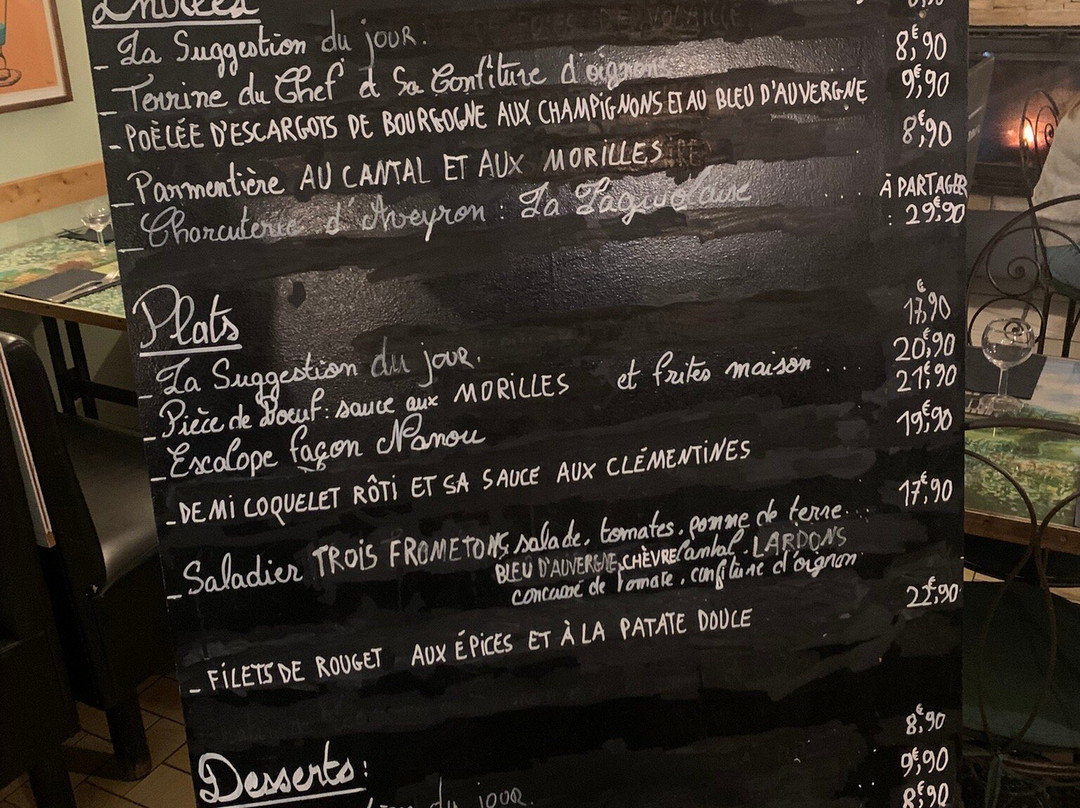 Entrées
- La Suggestion du jour. 8€,90
- Terrine du Chef et Sa Confiture d'oignons 9€,90
- POÈLÉE D'ESCARGOTS DE BOURGOGNE AUX CHAMPIGNONS ET AU BLEU D'AUVERGNE 8€,90
- Parmentière AU CANTAL ET AUX MORILLES
- Charcuterie d'Aveyron : La Laguiolaise ... À PARTAGER
: 29€,90
Plats
17€,90
- La Suggestion du jour. 20€,90
- Pièce de boeuf : sauce aux MORILLES et frites maison .... 21€,90
- Escalope façon Nanou 19€,90
- DEMI COQUELET RÔTI ET SA SAUCE AUX CLÉMENTINES
17€,90
- Saladier TROIS FROMETONS, salade, tomates, pomme de terre...
BLEU D'AUVERGNE, CHÈVRE, Cantal, LARDONS
concassé de tomate, confiture d'oignon
22€,90
- FILETS DE ROUGET AUX ÉPICES ET À LA PATATE DOUCE
8€,90
Desserts : 9€,90
du jour. 8€,90